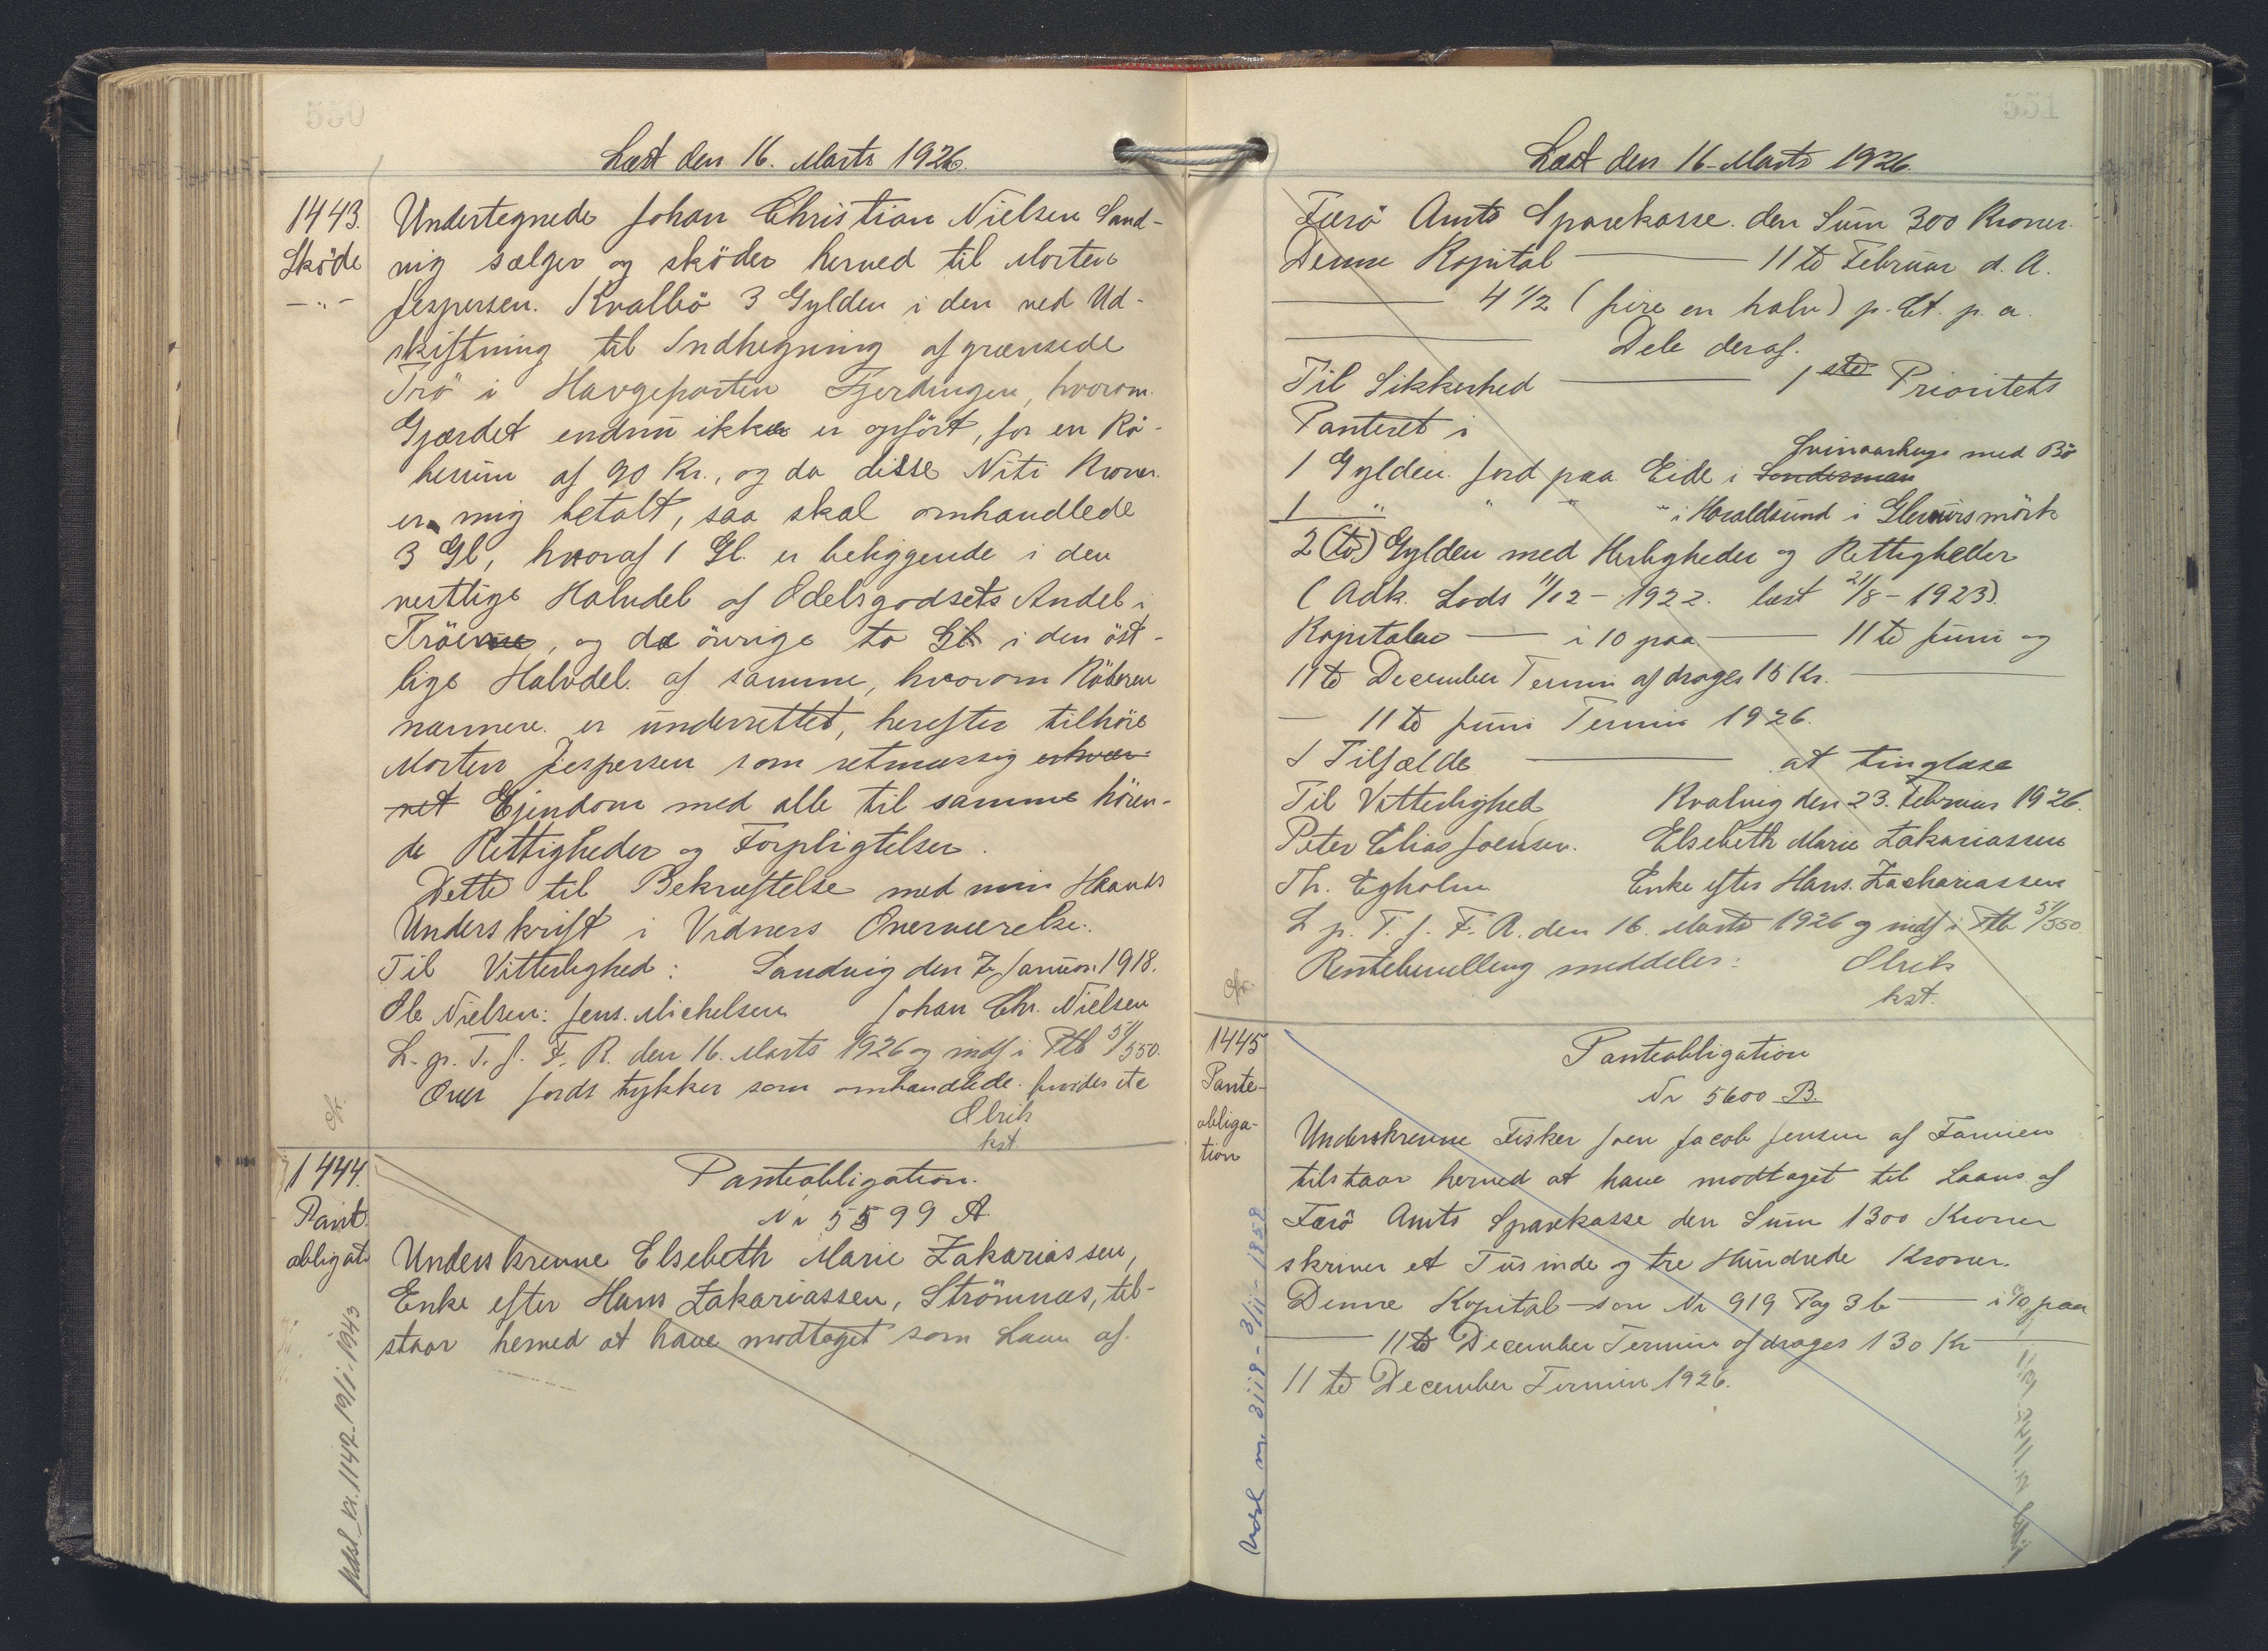 550
Læst den 16. Marts 1926.
1443.
Sköde
— " —
Undertegnede Johan Christian Nielsen Sand-
vig sælger og sköder herved til Morten
Jespersen. Kvalbö 3 Gylden i den ved Ud-
skiftning til Indhegning afgrænsede
Trö i Havgeparten Fjerdingen, hvorom
Gjærdet endnu ikke er opfört, for en Kö-
besum af 90 Kr., og da disse Niti Kroner
er mig betalt, saa skal omhandlede
3 Gl, hvoraf 1 Gl. er beliggende i den
vestlige Halvdel af Odelsgodsets Andel i
Tröerne, og de övrige to Gl i den öst-
lige Halvdel af samme, hvorom Köberen
nærmere er underrettet, herefter tilhöre
Morten Jespersen som retmæssig erhver-
vet Ejendom med alle til samme hören-
de Rettigheder og Forpligtelser.
Dette til Bekræftelse med min Haands
Underskrift i Vidners Overværelse.
Til Vitterlighed: Sandvig den 7 Januar 1918.
Ole Nielsen: Jens. Michelsen Johan Chr. Nielsen
L. p. T. f. F. R. den 16. Marts 1926 og indf i Ptb 51/550.
Over Jordstykker som omhandlede findes ete
Elrik
kst
1444.
Pant.
obligat.
Panteobligation.
Nr 5599 A.
Underskrevne Elsebeth Marie Zakariassen,
Enke efter Hans Zakariassen, Strömnæs, til-
staar herved at have modtaget som Laan af
Udsl. Nr. 1142-19/1-1943
551
Læst den 16. Marts 1926.
Færö Amts Sparekasse den Sum 300 Kroner.
Denne Kapital — 11te Februar d. A.
— 4 1/2 (fire en halv) p. Ct. p. a.
— Dele deraf.
Til Sikkerhed — 1ste Prioritets
Panteret i
Svinaarhuge med Bö
1 Gylden Jord paa Eide i Sondesman
1 " " " " i Haraldsund i Glemursmörk
2 (to) Gylden med Herligheder og Rettigheder
(Adk. Lods 11/12 - 1922. læst 21/8 - 1923).
Kapitalen — i 10 paa — 11te Juni og
11te December Termin afdrages 15 Kr. —
— 11te Juni Termin 1926.
I Tilfælde — at tinglæse
Til Vitterlighed Kvalvig den 23. Februar 1926.
Peter Elias Joensen. Elsebeth Marie Zakariassen
Th. Egholm Enke efter Hans Zachariassen
L p. T. f. F. R. den 16. Marts 1926 og indf i Ptb 51/550.
Rentebevilling meddeles: Elrik
kst.
1445
Pante-
obliga-
tion
Panteobligation
Nr 5600 B.
Underskrevne Fisker Joen Jacob Jensen af Famien
tilstaar herved at have modtaget til Laans af
Færö Amts Sparekasse den Sum 1300 Kroner
skriver et Tusinde og tre Hundrede Kroner.
Denne Kapital — som Nr 919 Pag 3 b — i 10 paa
— 11te December Termin afdrages 130 Kr —
11te December Termin 1926.
Udsl nr. 3118 - 3/11 - 1958